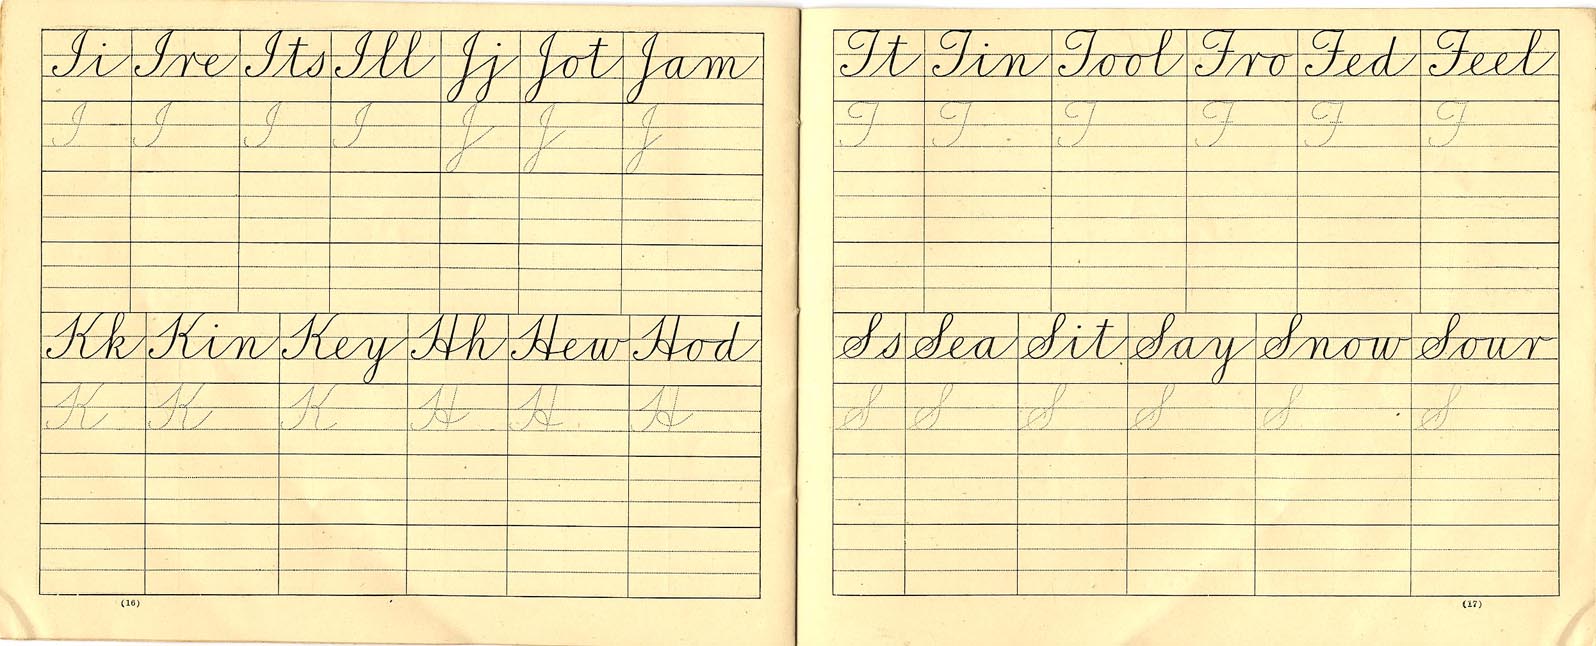 Ii Ire Its Ill Jj Jot Jam
I I I I J J J
Kk Kin Key Hh Hew Hod
K K K H H H
(16)
Tt Tin Tool Fro Fed Feel
T T T F F F
Ss Sea Sit Say Snow Sour
S S S S S S
(17)